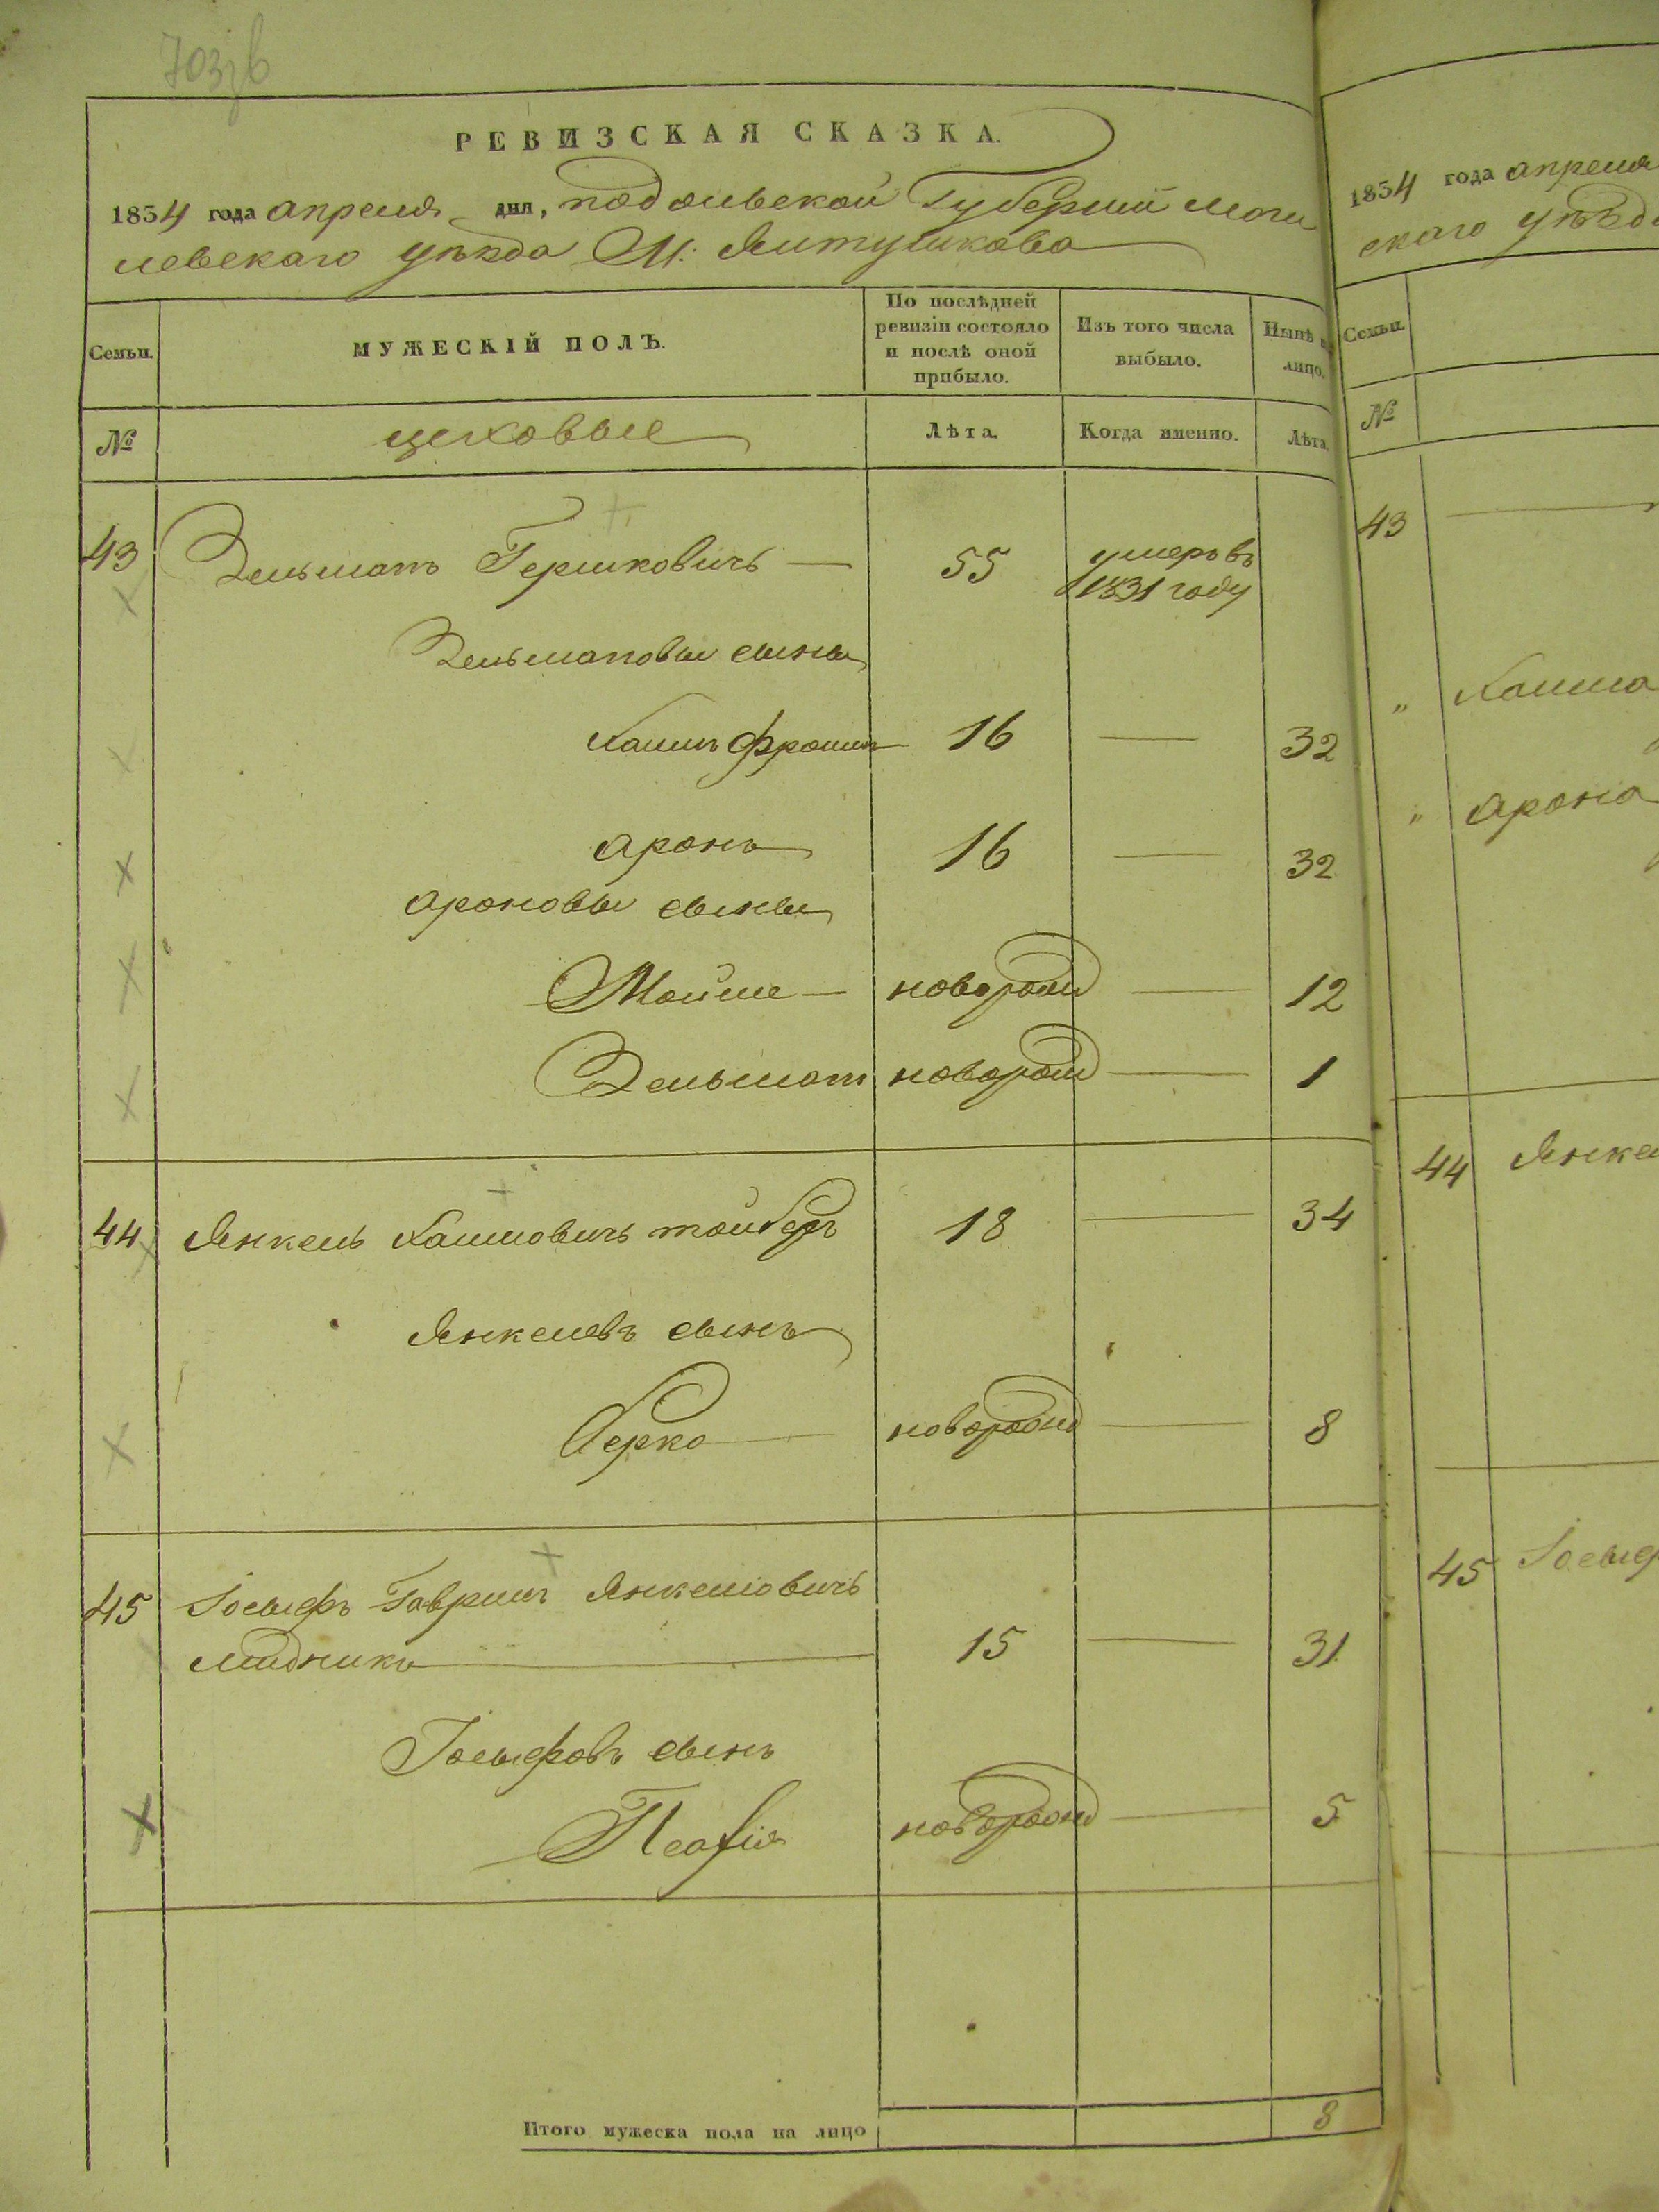 703зв
РЕВИЗСКАЯ СКАЗКА.
1834 года апреля дня, подольской Губерніи моги
левскаго уѣзда М: Ялтушкова
Семьи.
МУЖЕСКІЙ ПОЛЪ.
По послѣдней ревизіи состояло и послѣ оной прибыло.
Изъ того числа выбыло.
Нынѣ на лицо.
№
цеховые
Лѣта.
Когда именно.
Лѣта.
43 Зельманъ Гершковичъ — 55 умеръ въ 1831 году
Зельмановы сыны
Хаимъ Фроимъ 16 — 32
Аронъ 16 — 32
Ароновы сыны
Мойше — новорожд — 12
Зельманъ новорожд — 1
44 Янкель Хаимовичъ тойберъ 18 — 34
Янкелевъ сынъ
Берко новорожд — 8
45 Іосыфъ Гаврилъ Янкелювичъ
мидникъ — 15 — 31
Іосыфовъ сынъ
новорожд — 5
Итого мужеска пола на лицо 8
1834 года апреля
скаго уѣзд
Семьи.
№
43
" Хаима
" Арона
44 Янкел
45 Іосыф